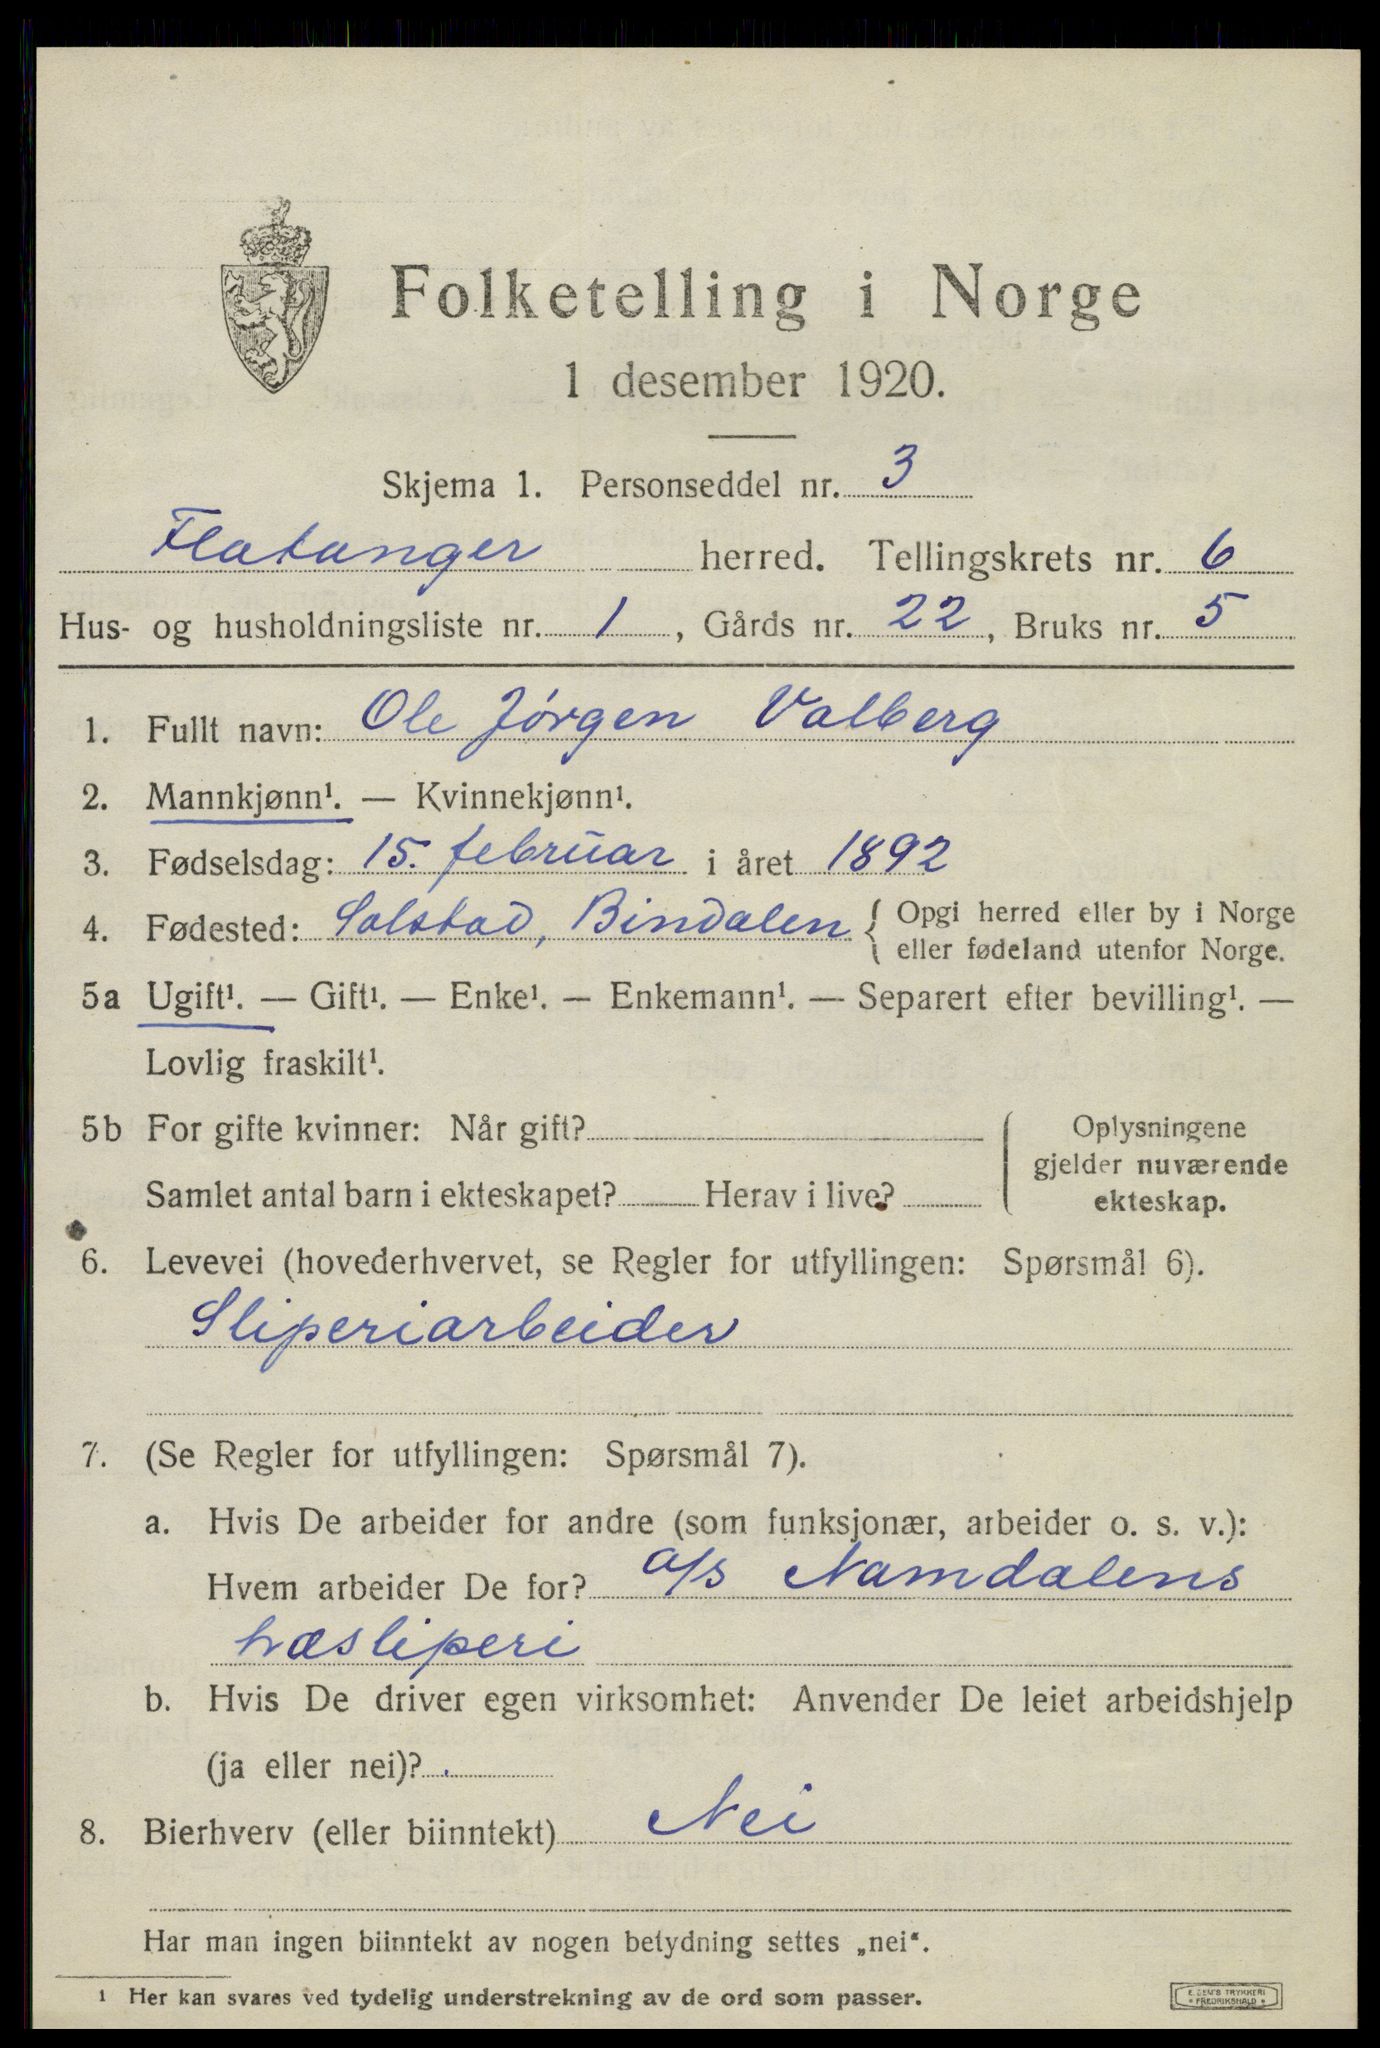 Folketelling i Norge
1 desember 1920.
Skjema 1. Personseddel nr. 3
Flatanger herred. Tellingskrets nr. 6
Hus- og husholdningsliste nr. 1, Gårds nr. 22, Bruks nr. 5
1. Fullt navn: Ole Jørgen Valberg
2. Mannkjønn¹. — Kvinnekjønn¹.
3. Fødselsdag: 15. februar i året 1892
4. Fødested: Solstad, Bindalen { Opgi herred eller by i Norge
eller fødeland utenfor Norge.
5a Ugift¹. — Gift¹. — Enke¹. — Enkemann¹. — Separert efter bevilling¹. —
Lovlig fraskilt¹.
5b For gifte kvinner: Når gift?
Samlet antal barn i ekteskapet? Herav i live?
Oplysningene
gjelder nuværende
ekteskap.
6. Levevei (hovederhvervet, se Regler for utfyllingen: Spørsmål 6).
Sliperiarbeider
7. (Se Regler for utfyllingen: Spørsmål 7).
a. Hvis De arbeider for andre (som funksjonær, arbeider o. s. v.):
Hvem arbeider De for? a/s Namdalens
træsliperi
b. Hvis De driver egen virksomhet: Anvender De leiet arbeidshjelp
(ja eller nei)?
8. Bierhverv (eller biinntekt) Nei
Har man ingen biinntekt av nogen betydning settes „nei“.
¹ Her kan svares ved tydelig understrekning av de ord som passer.
E. SEM'S TRYKKERI
FREDRIKSHALD